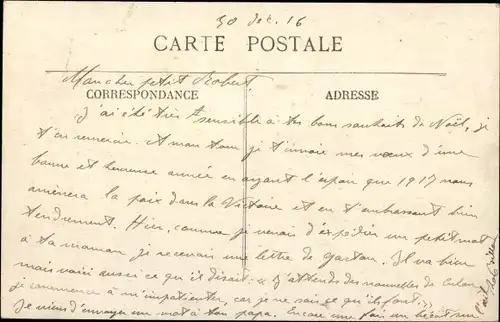 30 déc. 16
CARTE POSTALE
Mon cher petit Robert
CORRESPONDANCE
ADRESSE
J'ai été très sensible à tes bons souhaits de Noël, je
t'en remercie. A mon tour je t'envoie mes vœux d'une
bonne et heureuse année en ayant l'espoir que 1917 nous
amènera la paix dans la Victoire et en t'embrassant bien
tendrement. Hier, comme je venais d'expédier un petit mot
à ta maman je recevais une lettre de Gaston. Il va bien
mais voici aussi ce qu'il disait « J'attends des nouvelles de
je commence à m'impatienter, car je ne sais ce qu'ils font. »
Je viens d'envoyer un mot à ton papa. Encore une fois un bécot sur